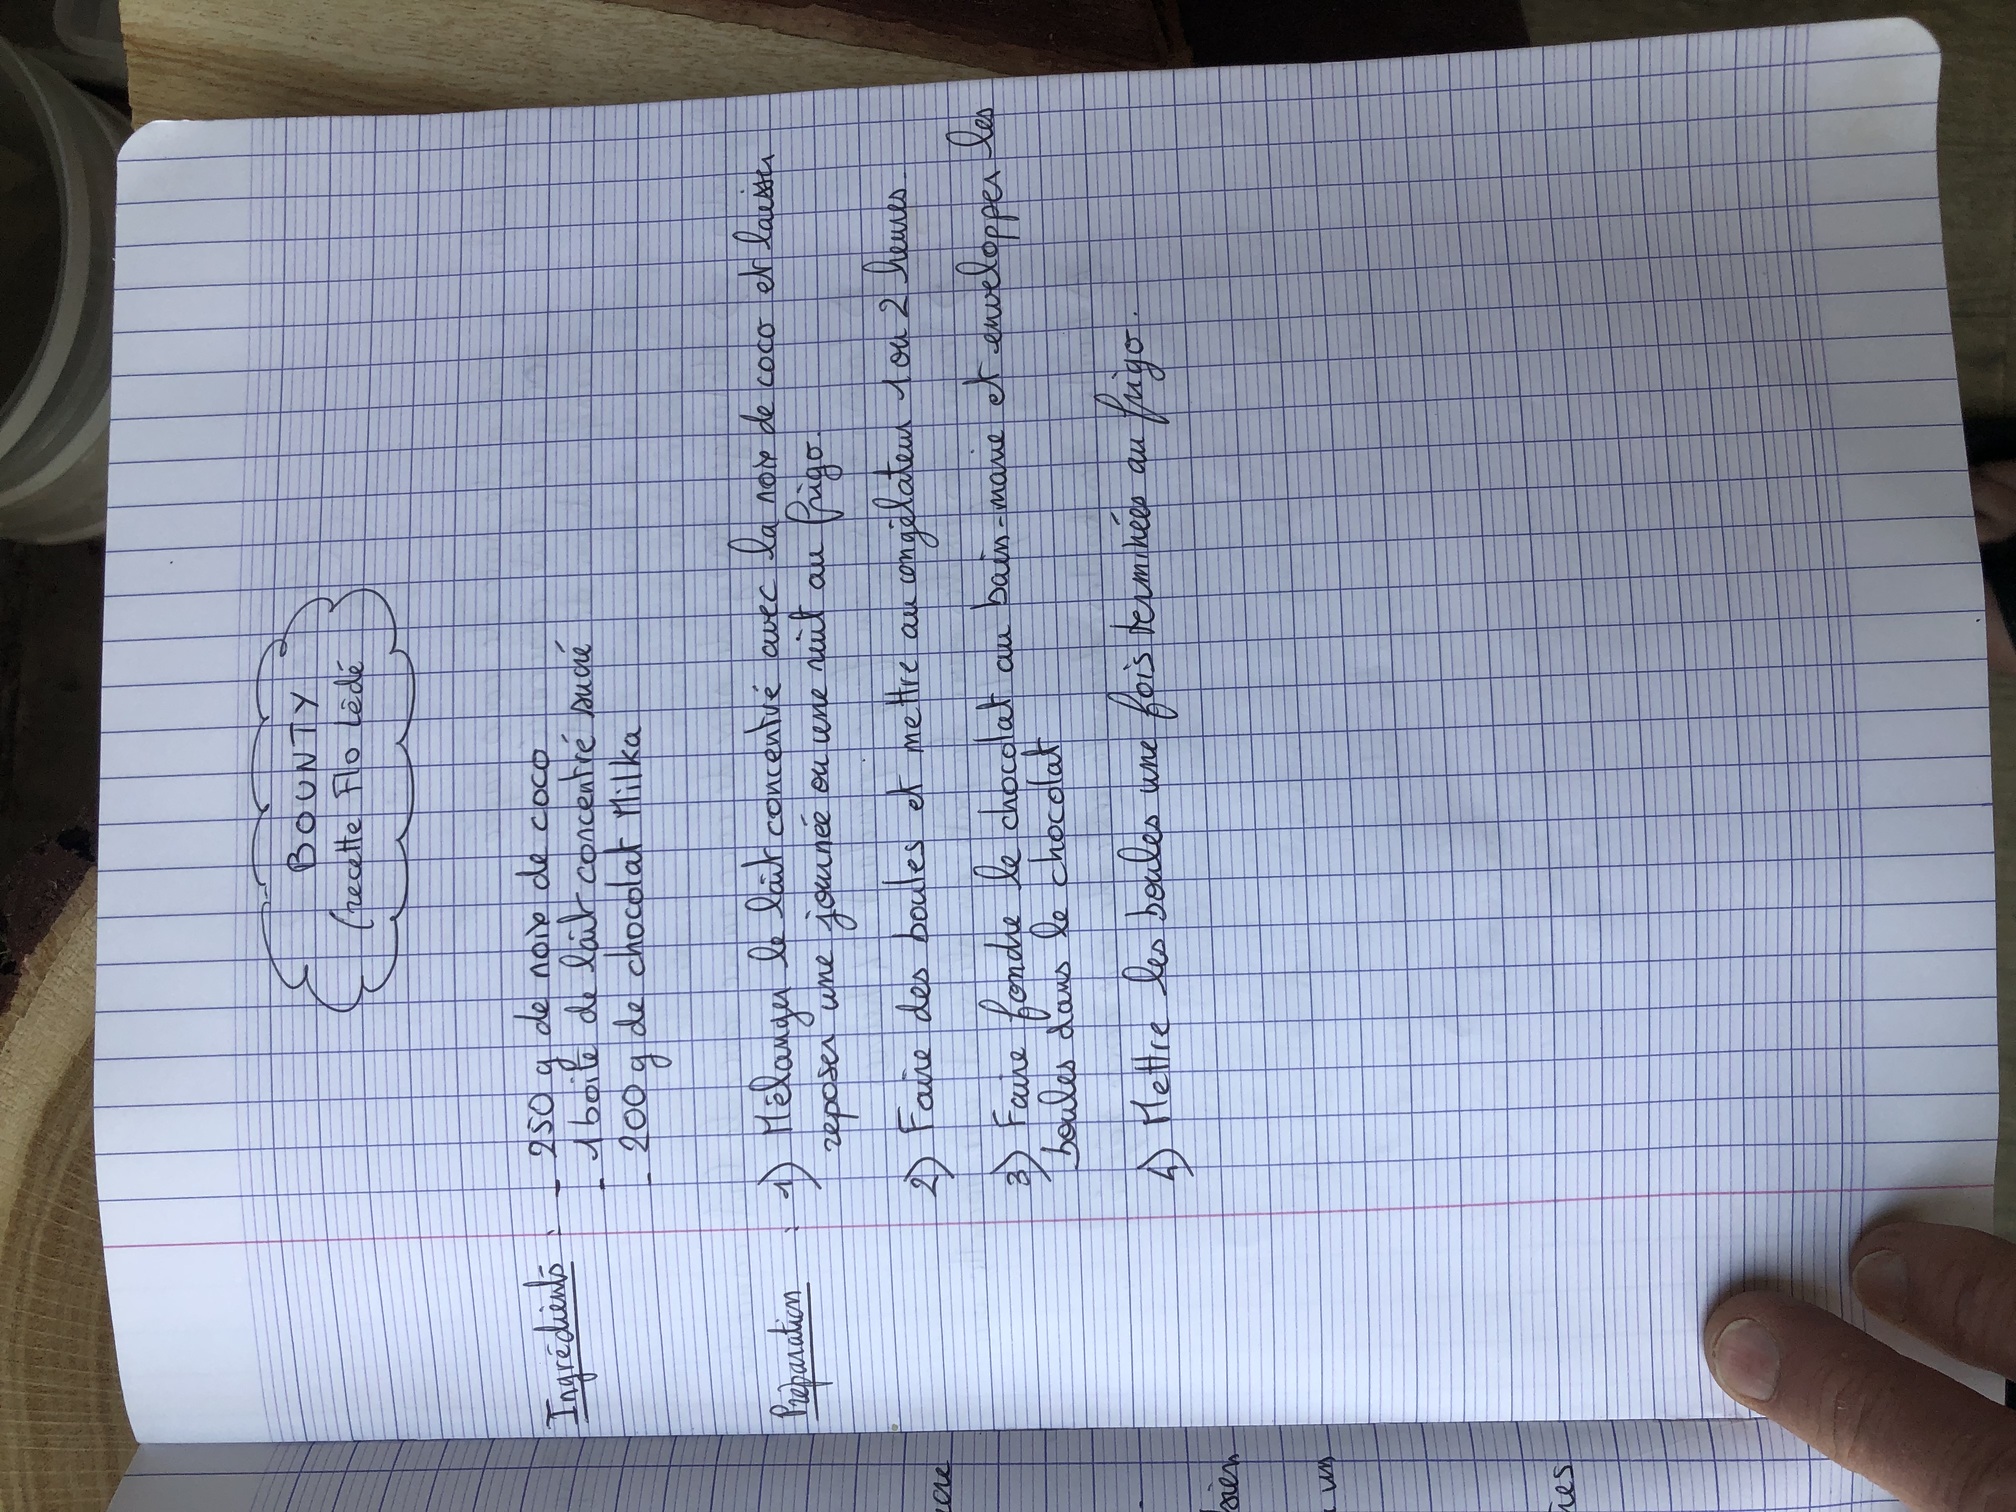 BOUNTY
(recette Flo Lédé
Ingrédients : - 250 g de noix de coco
- 1 boite de lait concentré sucré
- 200 g de chocolat Milka
Préparation : 1) Mélanger le lait concentré avec la noix de coco et laisser
reposer une journée ou une nuit au frigo.
2) Faire des boules et mettre au congélateur 1 ou 2 heures.
3) Faire fondre le chocolat au bain-marie et envelopper les
boules dans le chocolat
4) Mettre les boules une fois terminées au frigo.